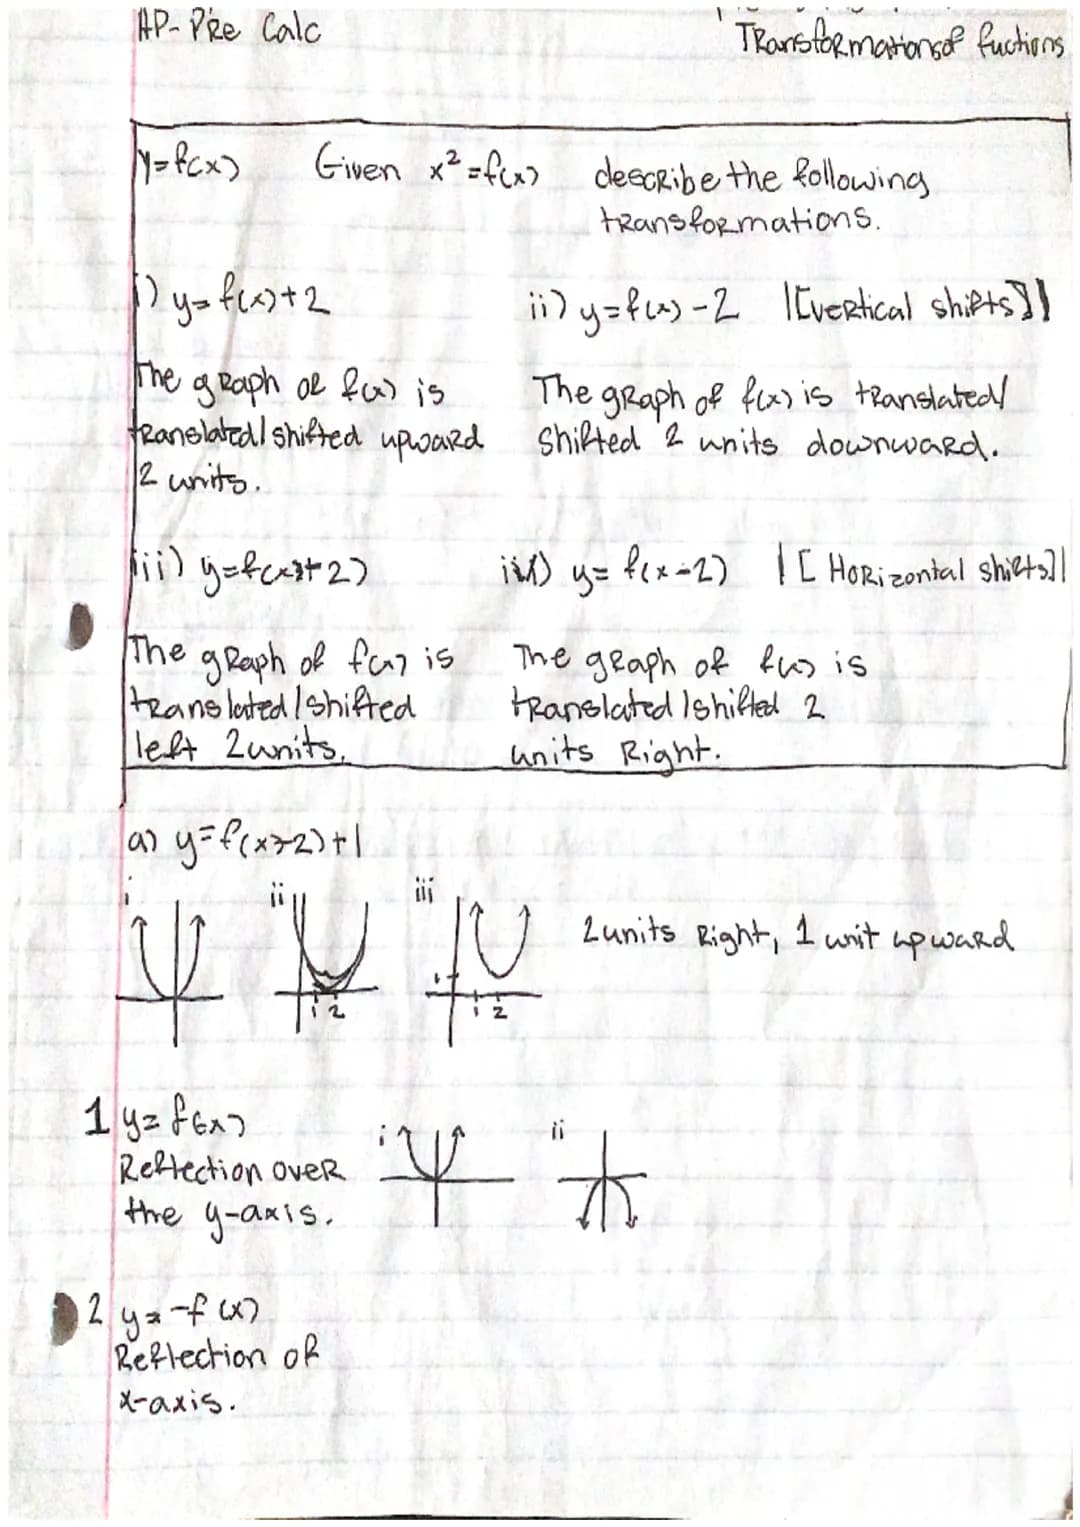 AP-Pre Calc
Transformations of fuctions
y=f(x) Given x²=f(x) describe the following
transformations.
i) y=f(x)+2 ii) y=f(x)-2 |[vertical shifts]|
The graph of f(x) is
translated/shifted upward
2 units.
The graph of f(x) is translated/
shifted 2 units downward.
iii) y=f(x+2) y=f(x-2) |[Horizontal shifts]|
The graph of f(x) is
translated/shifted
left 2units.
The graph of f(x) is
translated/shifted 2
units Right.
a) y=f(x-2)+1
i ii iii
2units Right, 1 unit upward
1 2
1
1 2
1 y=f(-x)
Reflection over
the y-axis.
i ii
2 y=-f(x)
Reflection of
x-axis.